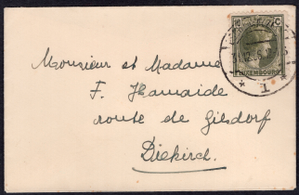 10 C
LUXEMBOURG
Monsieur et Madame
F. Hamaide
route de Gilsdorf
Diekirch.